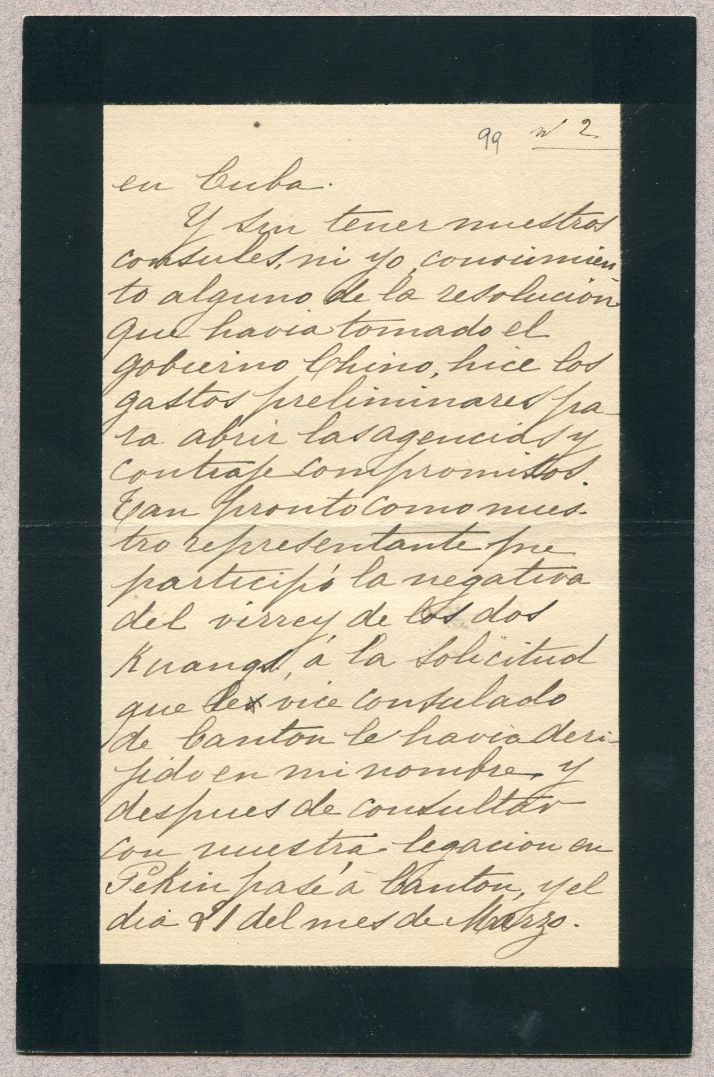 99 nº 2
en Cuba.
Y sin tener nuestros
consules, ni yo, conocimien-
to alguno de la resolucion
que havia tomado el
gobierno Chino, hice los
gastos preliminares pa-
ra abrir las agencias y
contraje compromisos.
Tan pronto como nues-
tro representante me
participó la negativa
del virrey de los dos
Kuangs, á la solicitud
que le vice consulado
de Canton le havia deri-
jido en mi nombre, y
despues de consultar
con nuestra legacion en
Pekin pasé á Canton, y el
dia 21 del mes de Marzo.